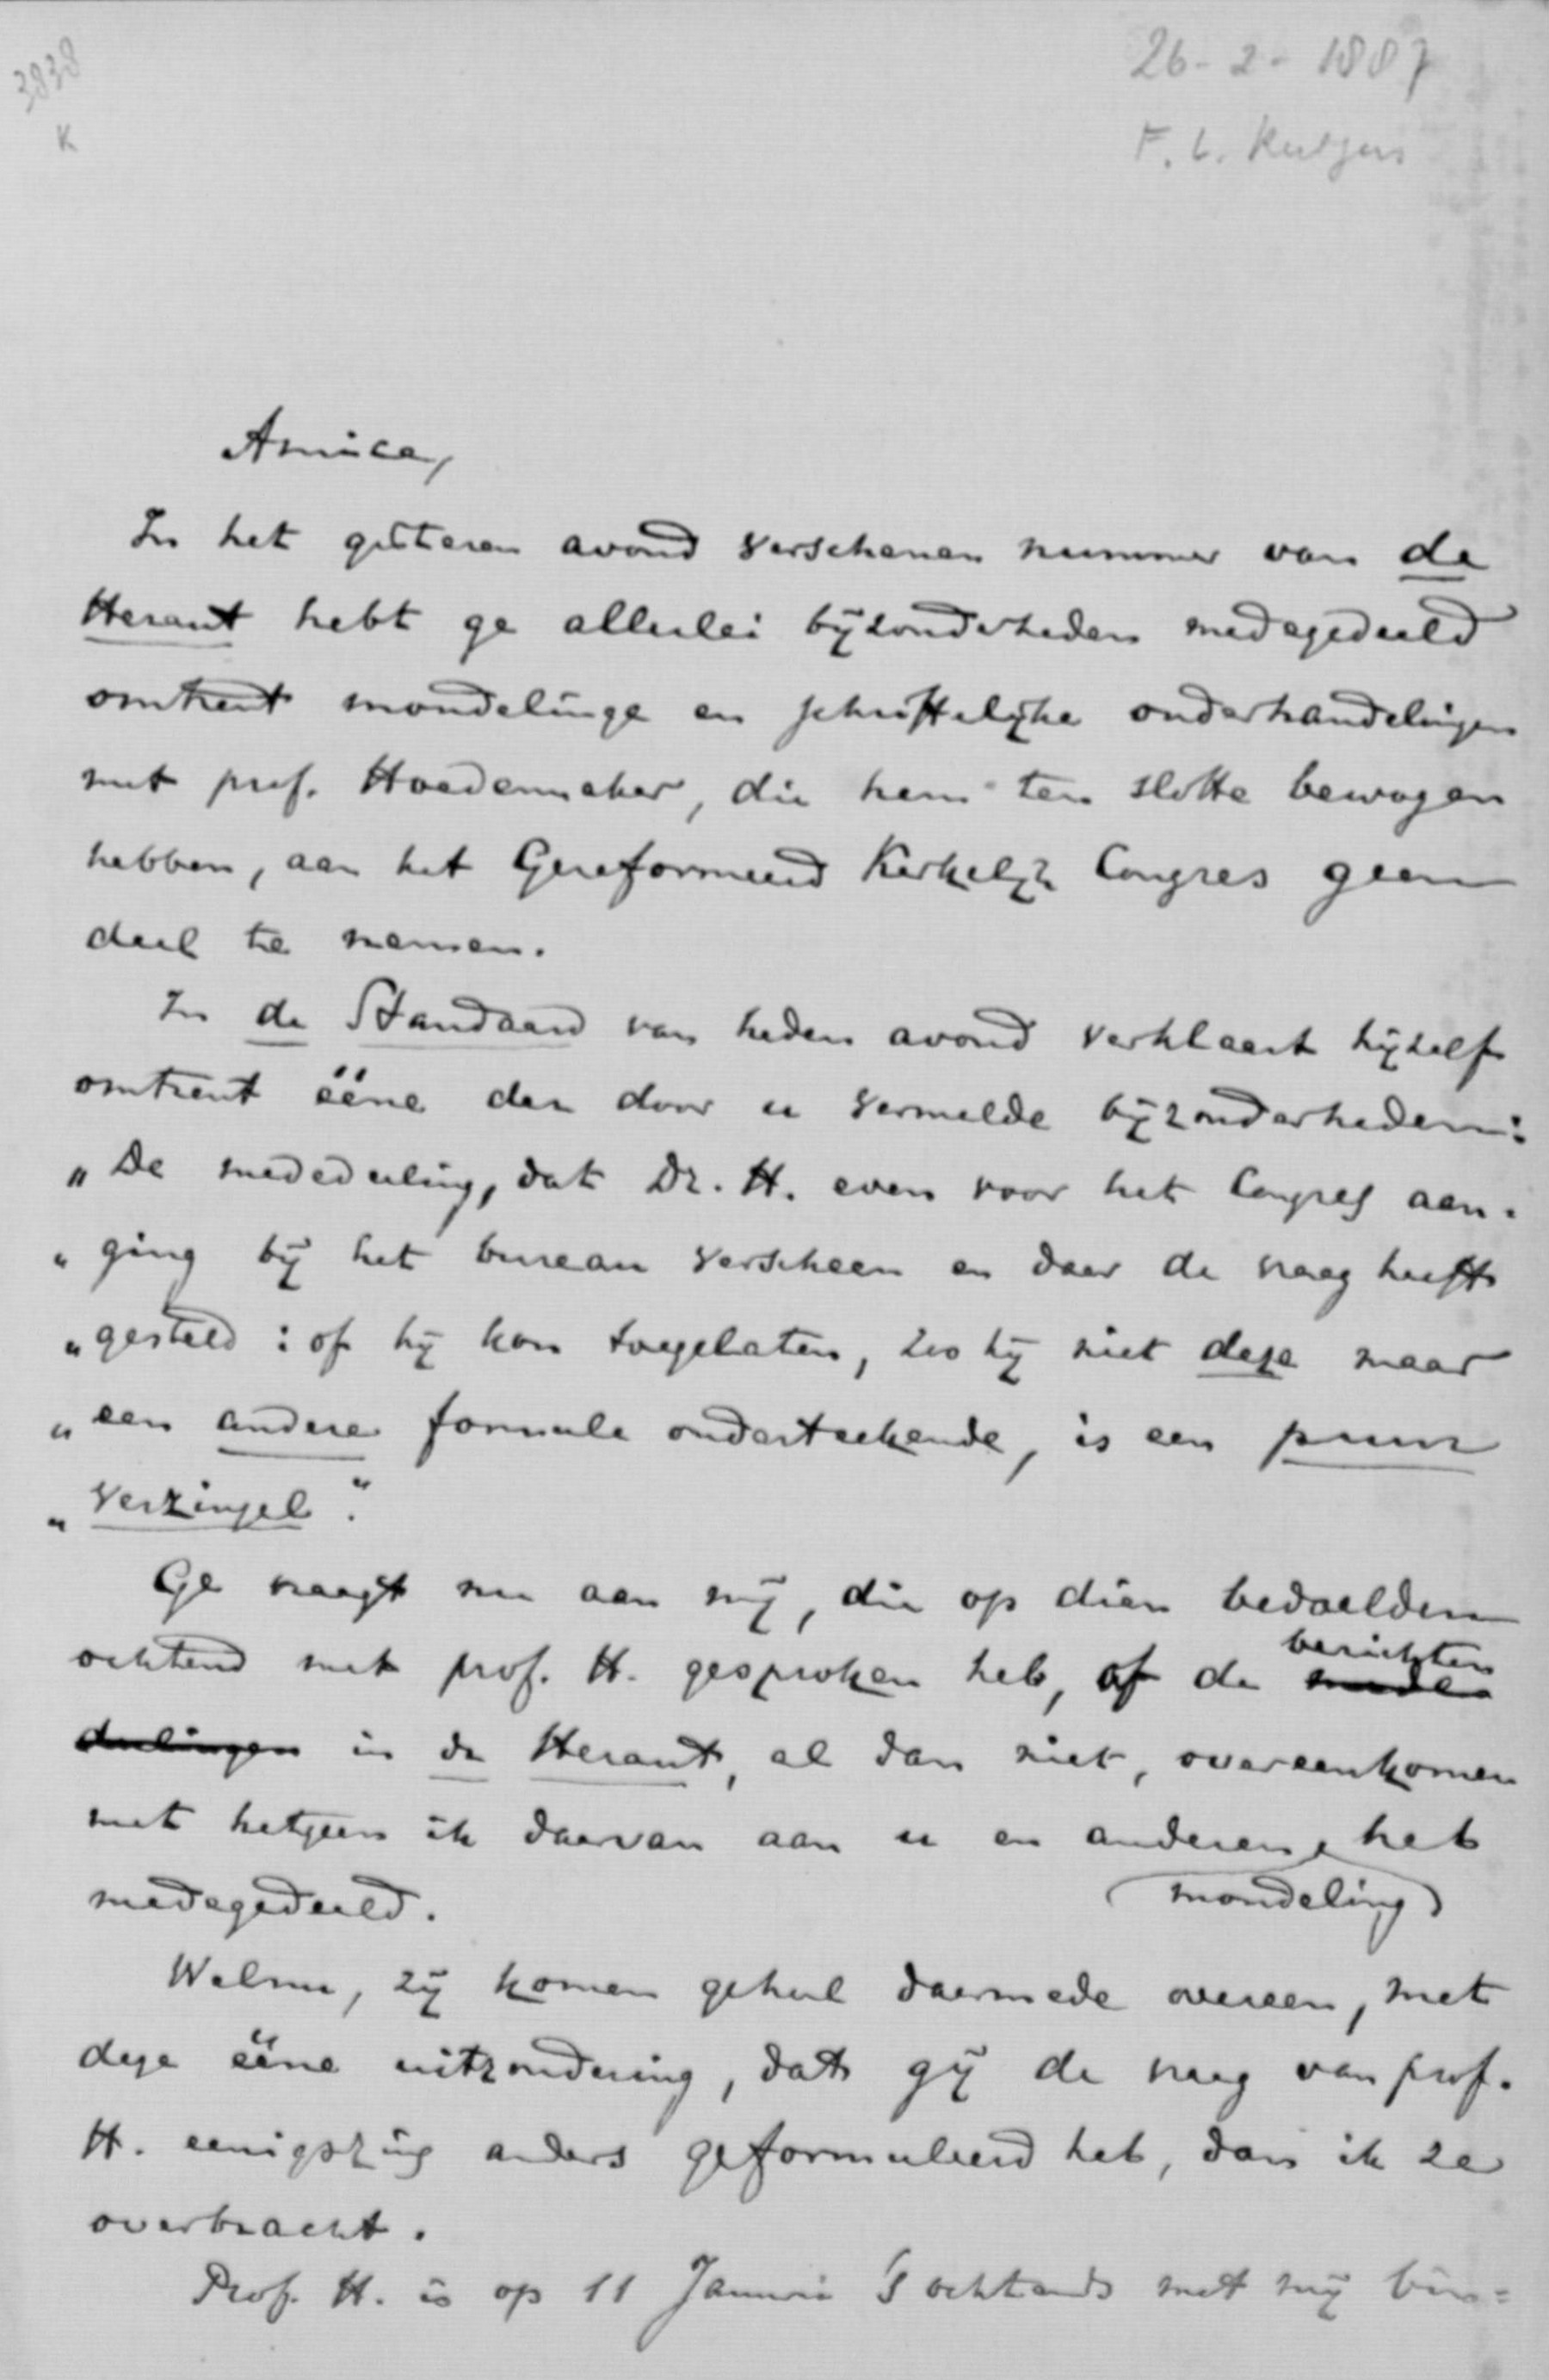 3838
K
26-2-1887
F. L. Rutgers
Amice,
In het gisteren avond verschenen nummer van de
Heraut hebt ge allerlei bijzonderheden medegedeeld
omtrent mondelinge en schriftelijke onderhandelingen
met prof. Hoedemaker, die hem ten slotte bewogen
hebben, aan het Gereformeerd Kerkelijk Congres geen
deel te nemen.
In de Standaard van heden avond verklaart hijzelf
omtrent ééne der door u vermelde bijzonderheden:
„De mededeeling, dat Dr. H. even voor het Congres aan-
„ging bij het bureau verscheen en daar de vraag heeft
„gesteld: of hij kon toegelaten, zoo hij niet deze maar
„een andere formule onderteekende, is een puur
„verzinsel".
Ge vraagt nu aan mij, die op dien bedoelden
ochtend met prof. H. gesproken heb, of de mede berichten
deelingen in de Heraut, al dan niet, overeenkomen
met hetgeen ik daarvan aan u en anderen heb
medegedeeld. (mondeling)
Welnu, zij komen geheel daarmede overeen, met
deze ééne uitzondering, dat gij de vraag van prof.
H. eenigszins anders geformuleerd hebt, dan ik ze
overbracht.
Prof. H. is op 11 Januari 's ochtends met mij bin=